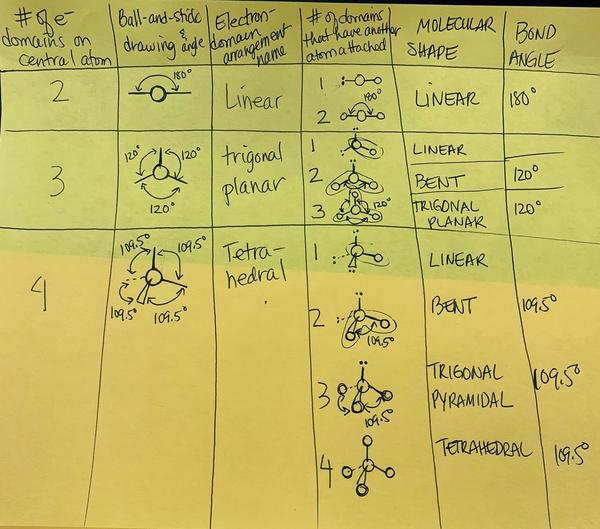 # of e⁻ domains on central atom
Ball-and-stick drawing & angle
Electron-domain arrangement name
# of domains that have another atom attached
MOLECULAR SHAPE
BOND ANGLE
2
180°
Linear
1
LINEAR
180°
180°
2
3
120°
120°
120°
trigonal planar
1
LINEAR
2
BENT
120°
3
120°
TRIGONAL PLANAR
120°
4
109.5°
109.5°
109.5°
109.5°
Tetra-
hedral
1
LINEAR
2
109.5°
BENT
109.5°
3
109.5°
TRIGONAL PYRAMIDAL
109.5°
4
TETRAHEDRAL
109.5°